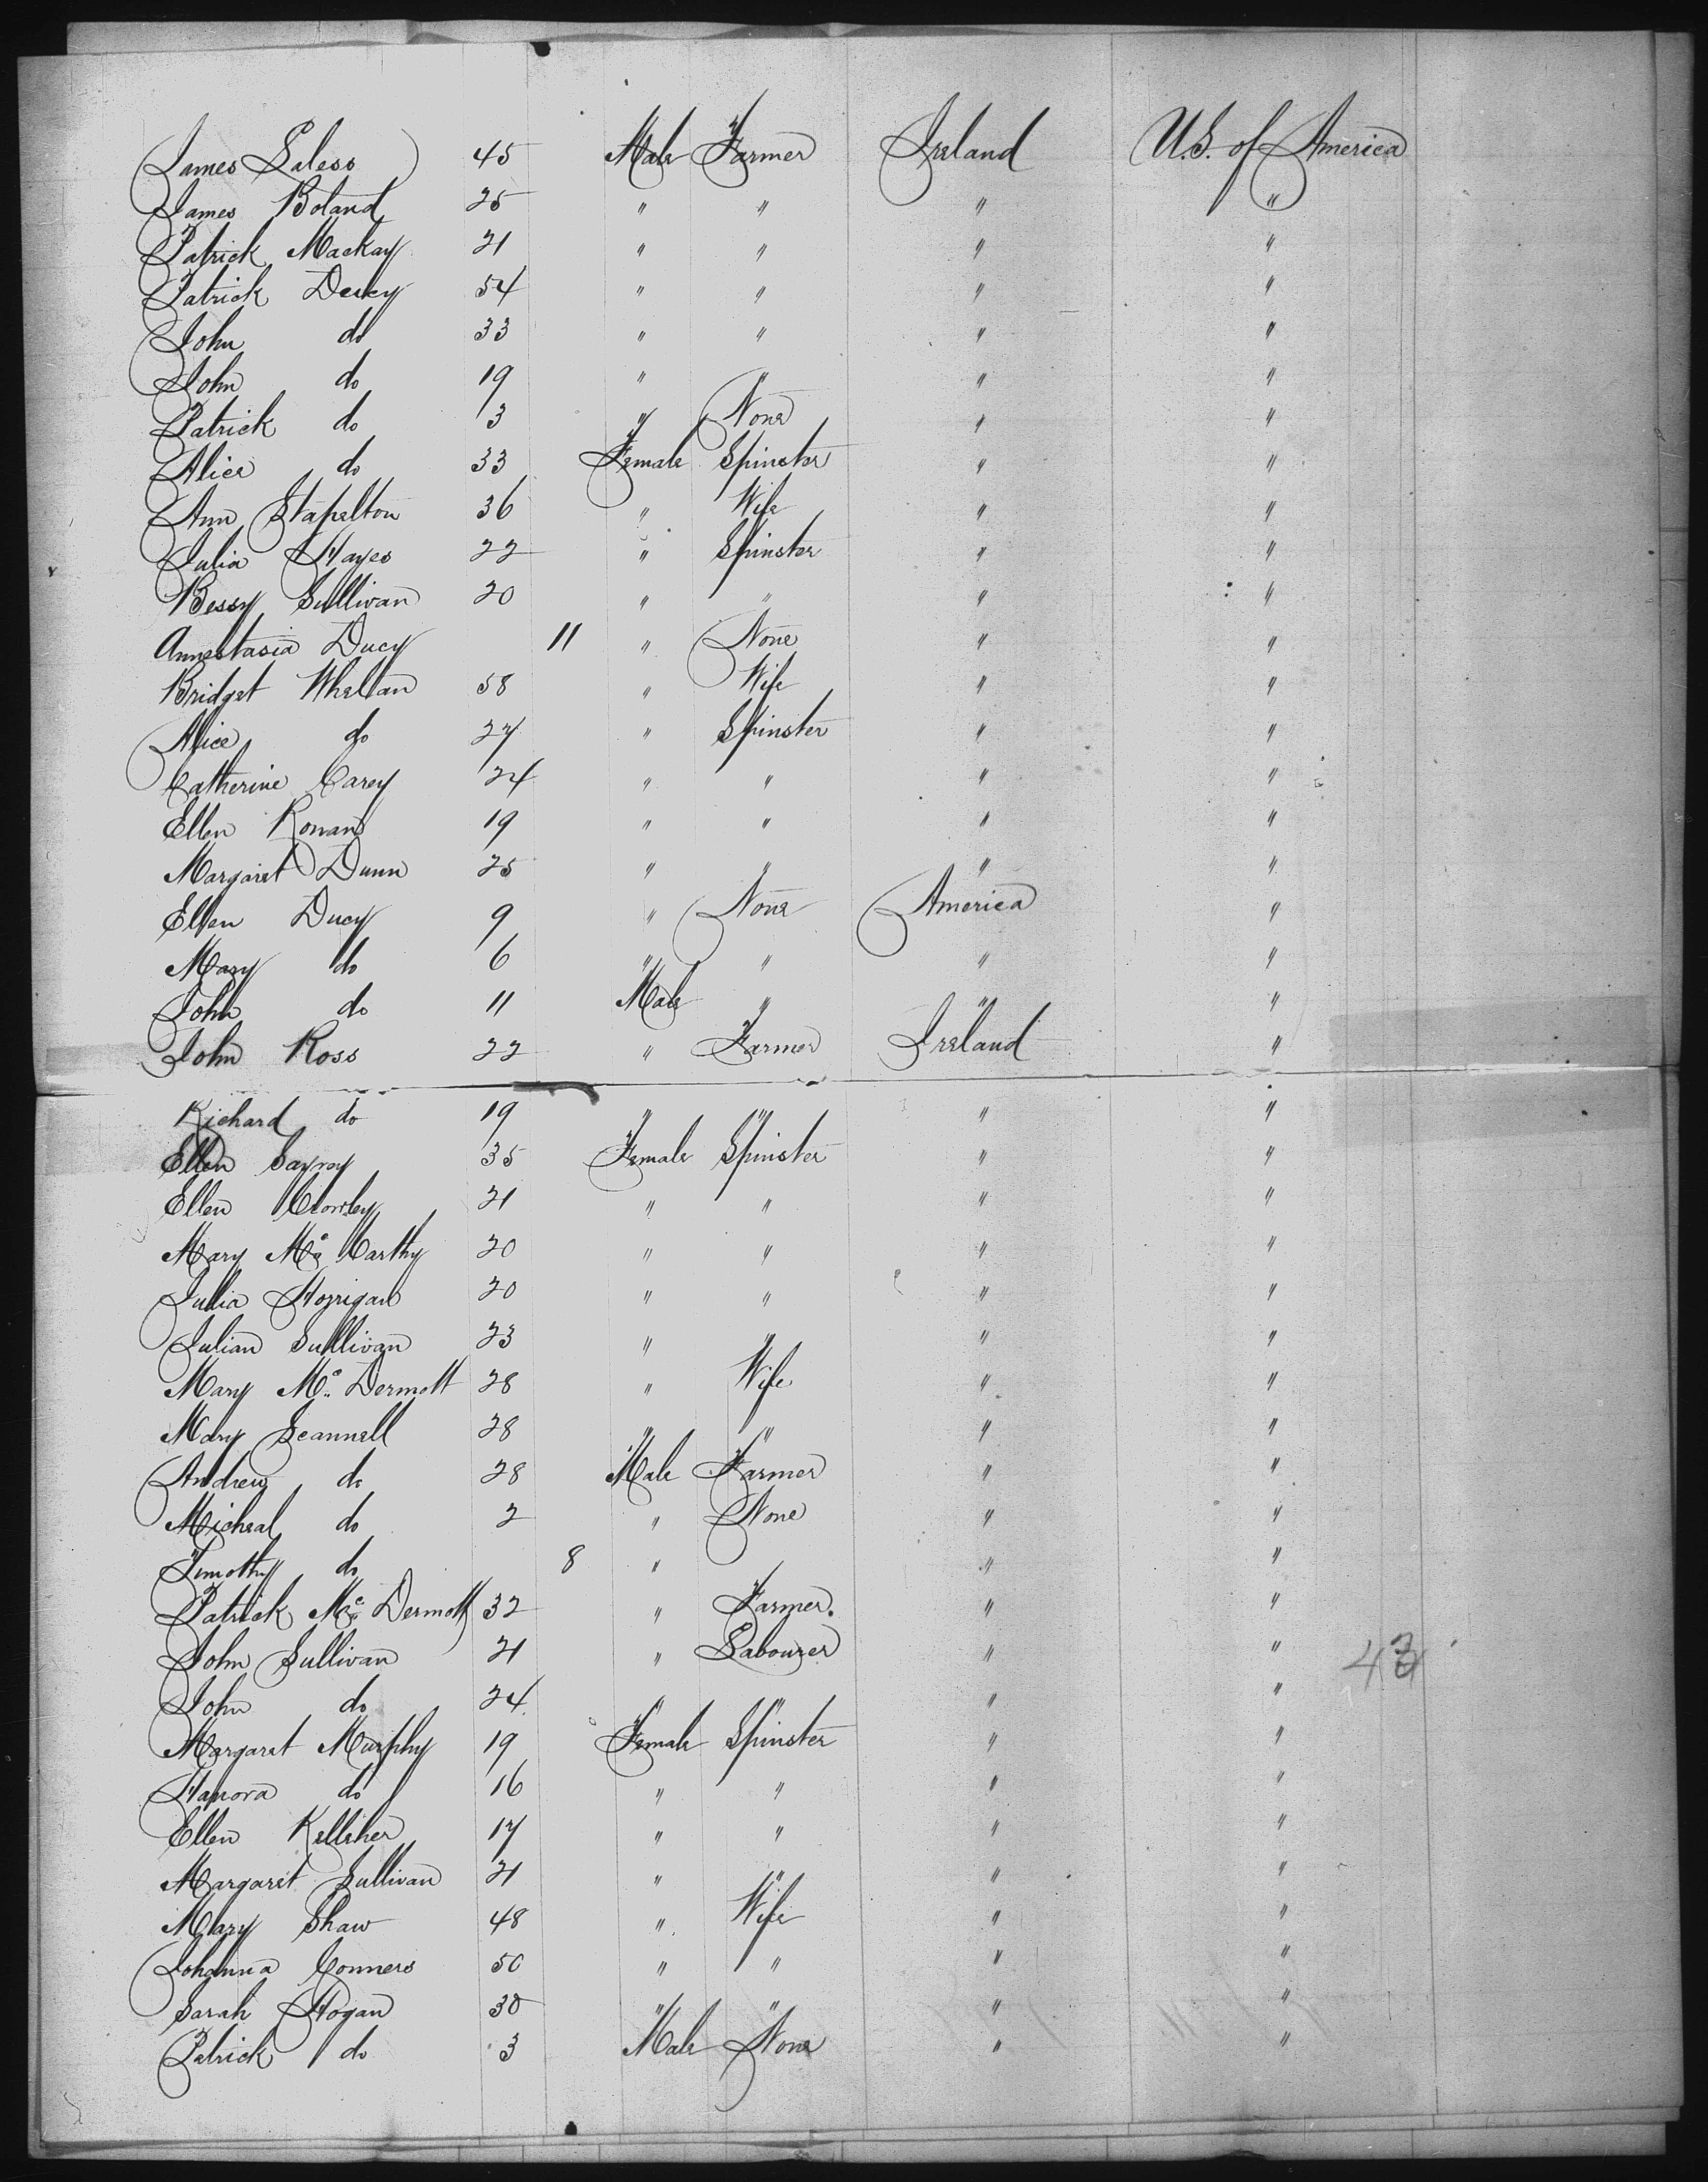 James Laless 45 Male Farmer Ireland U.S. of America
James Boland 25 " " " "
Patrick Mackay 21 " " " "
Patrick Ducy 54 " " " "
John do 33 " " " "
John do 19 " " " "
Patrick do 3 " None " "
Alice do 33 Female Spinster " "
Ann Stapelton 36 " Wife " "
Julia Hayes 22 " Spinster " "
Bessy Sullivan 20 " " " "
Annastasia Ducy 11 " None " "
Bridget Wheltan 58 " Wife " "
Alice do 27 " Spinster " "
Catherine Carey 24 " " " "
Ellen Ronan 19 " " " "
Margaret Dunn 25 " " " "
Ellen Ducy 9 " None America "
Mary do 6 " " " "
John do 11 Male " " "
John Ross 22 " Farmer Ireland "
Richard do 19 " " " "
Ellen 35 Female Spinster " "
Ellen Crowley 21 " " " "
Mary Mc Carthy 20 " " " "
Julia Horrigan 20 " " " "
Julian Sullivan 23 " " " "
Mary Mc Dermott 28 " Wife " "
Mary Scannell 28 " " " "
Andrew do 28 Male Farmer " "
Micheal do 2 " None " "
Timothy do 8 " " "
Patrick Mc Dermott 32 " Farmer. " "
John Sullivan 21 " Labourer " "
John do 24 " " " "
Margaret Murphy 19 Female Spinster " "
Hanora do 16 " " " "
Ellen Kelleher 17 " " " "
Margaret Sullivan 21 " " " "
Mary Shaw 48 " Wife " "
Johanna Conners 50 " " " "
Sarah Hogan 30 " " " "
Patrick do 3 Male None " "